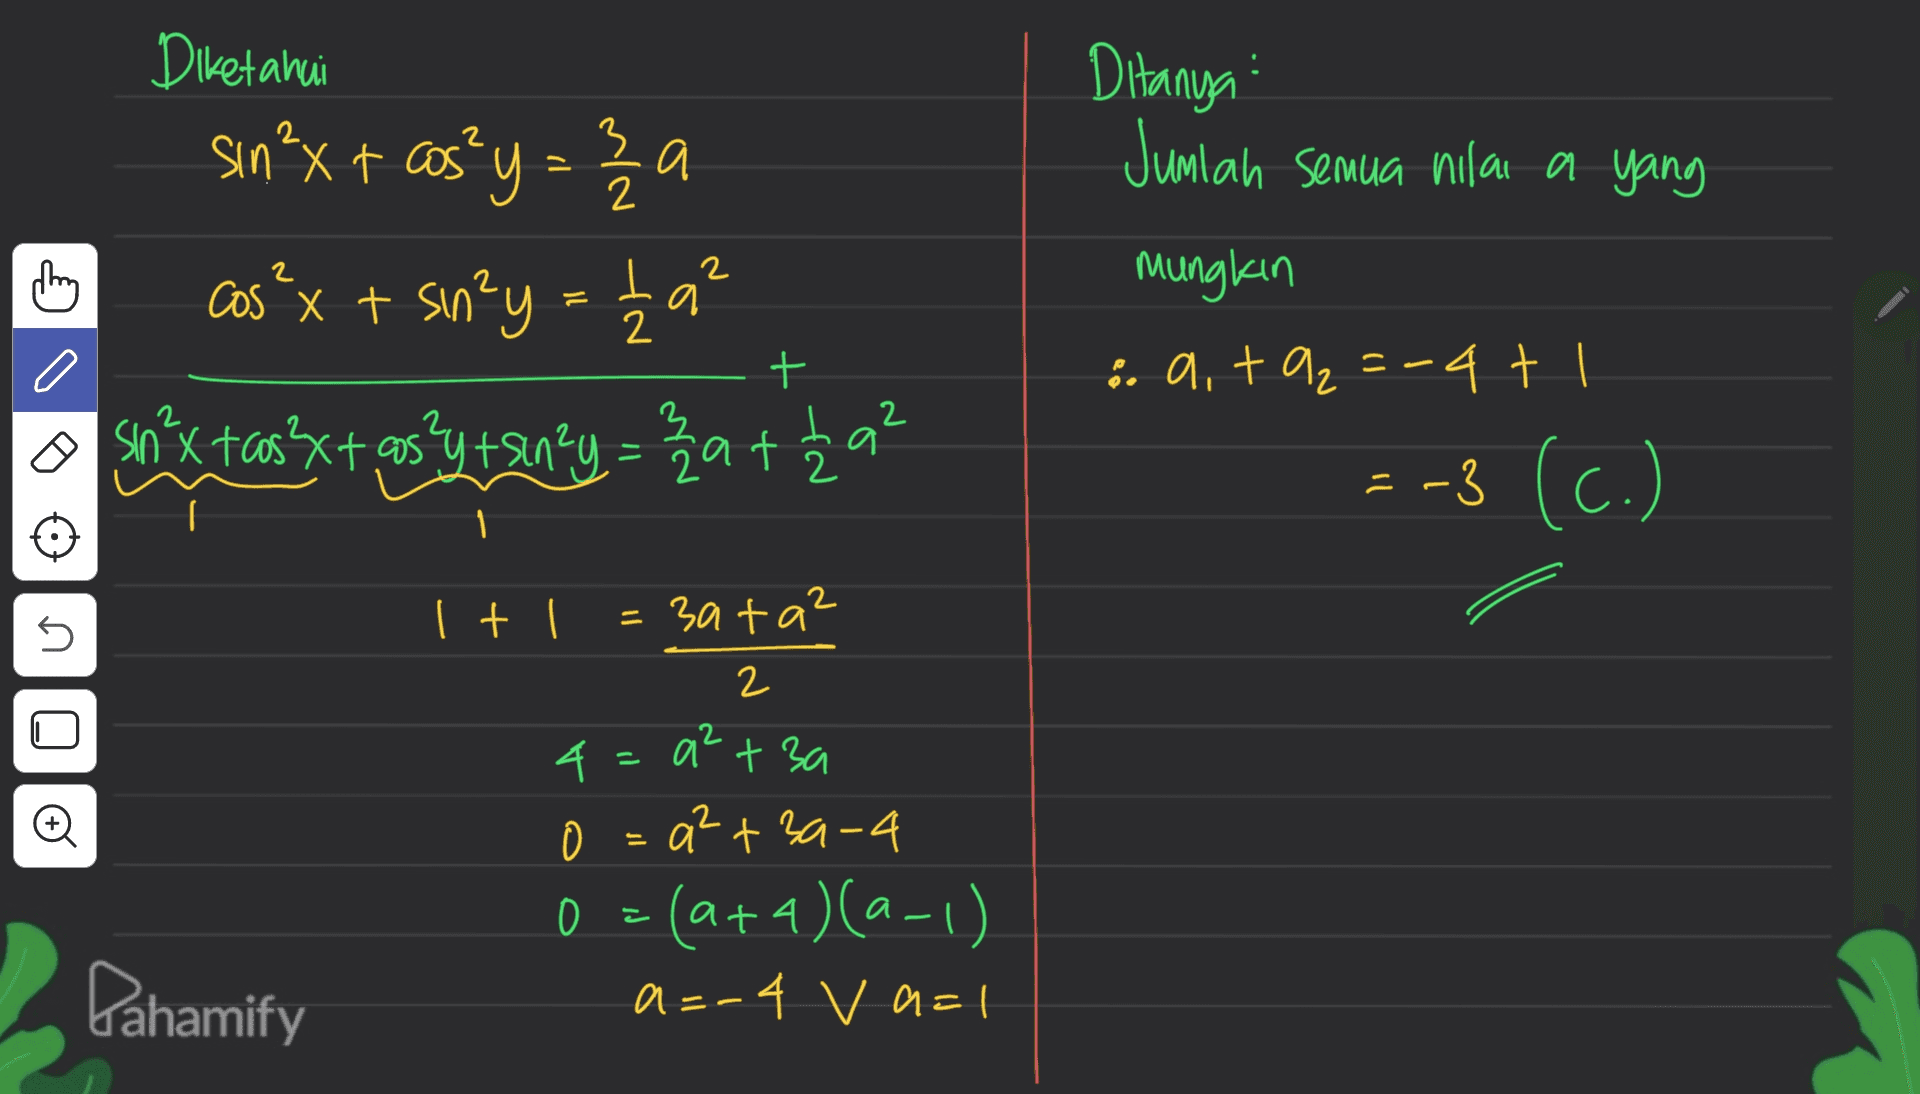 Diketahui
sin²x + cos²y = 3/2 a
cos²x + sin²y = 1/2 a²
+
sin²x + cos²x + cos²y + sin²y = 3/2 a + 1/2 a²
1 1
1 + 1 = 3a + a² / 2
4 = a² + 3a
0 = a² + 3a - 4
0 = (a+4)(a-1)
a = -4 V a = 1
Ditanya :
Jumlah semua nilai a yang
mungkin
∴ a₁ + a₂ = -4 + 1
= -3 (c.)
Pahamify